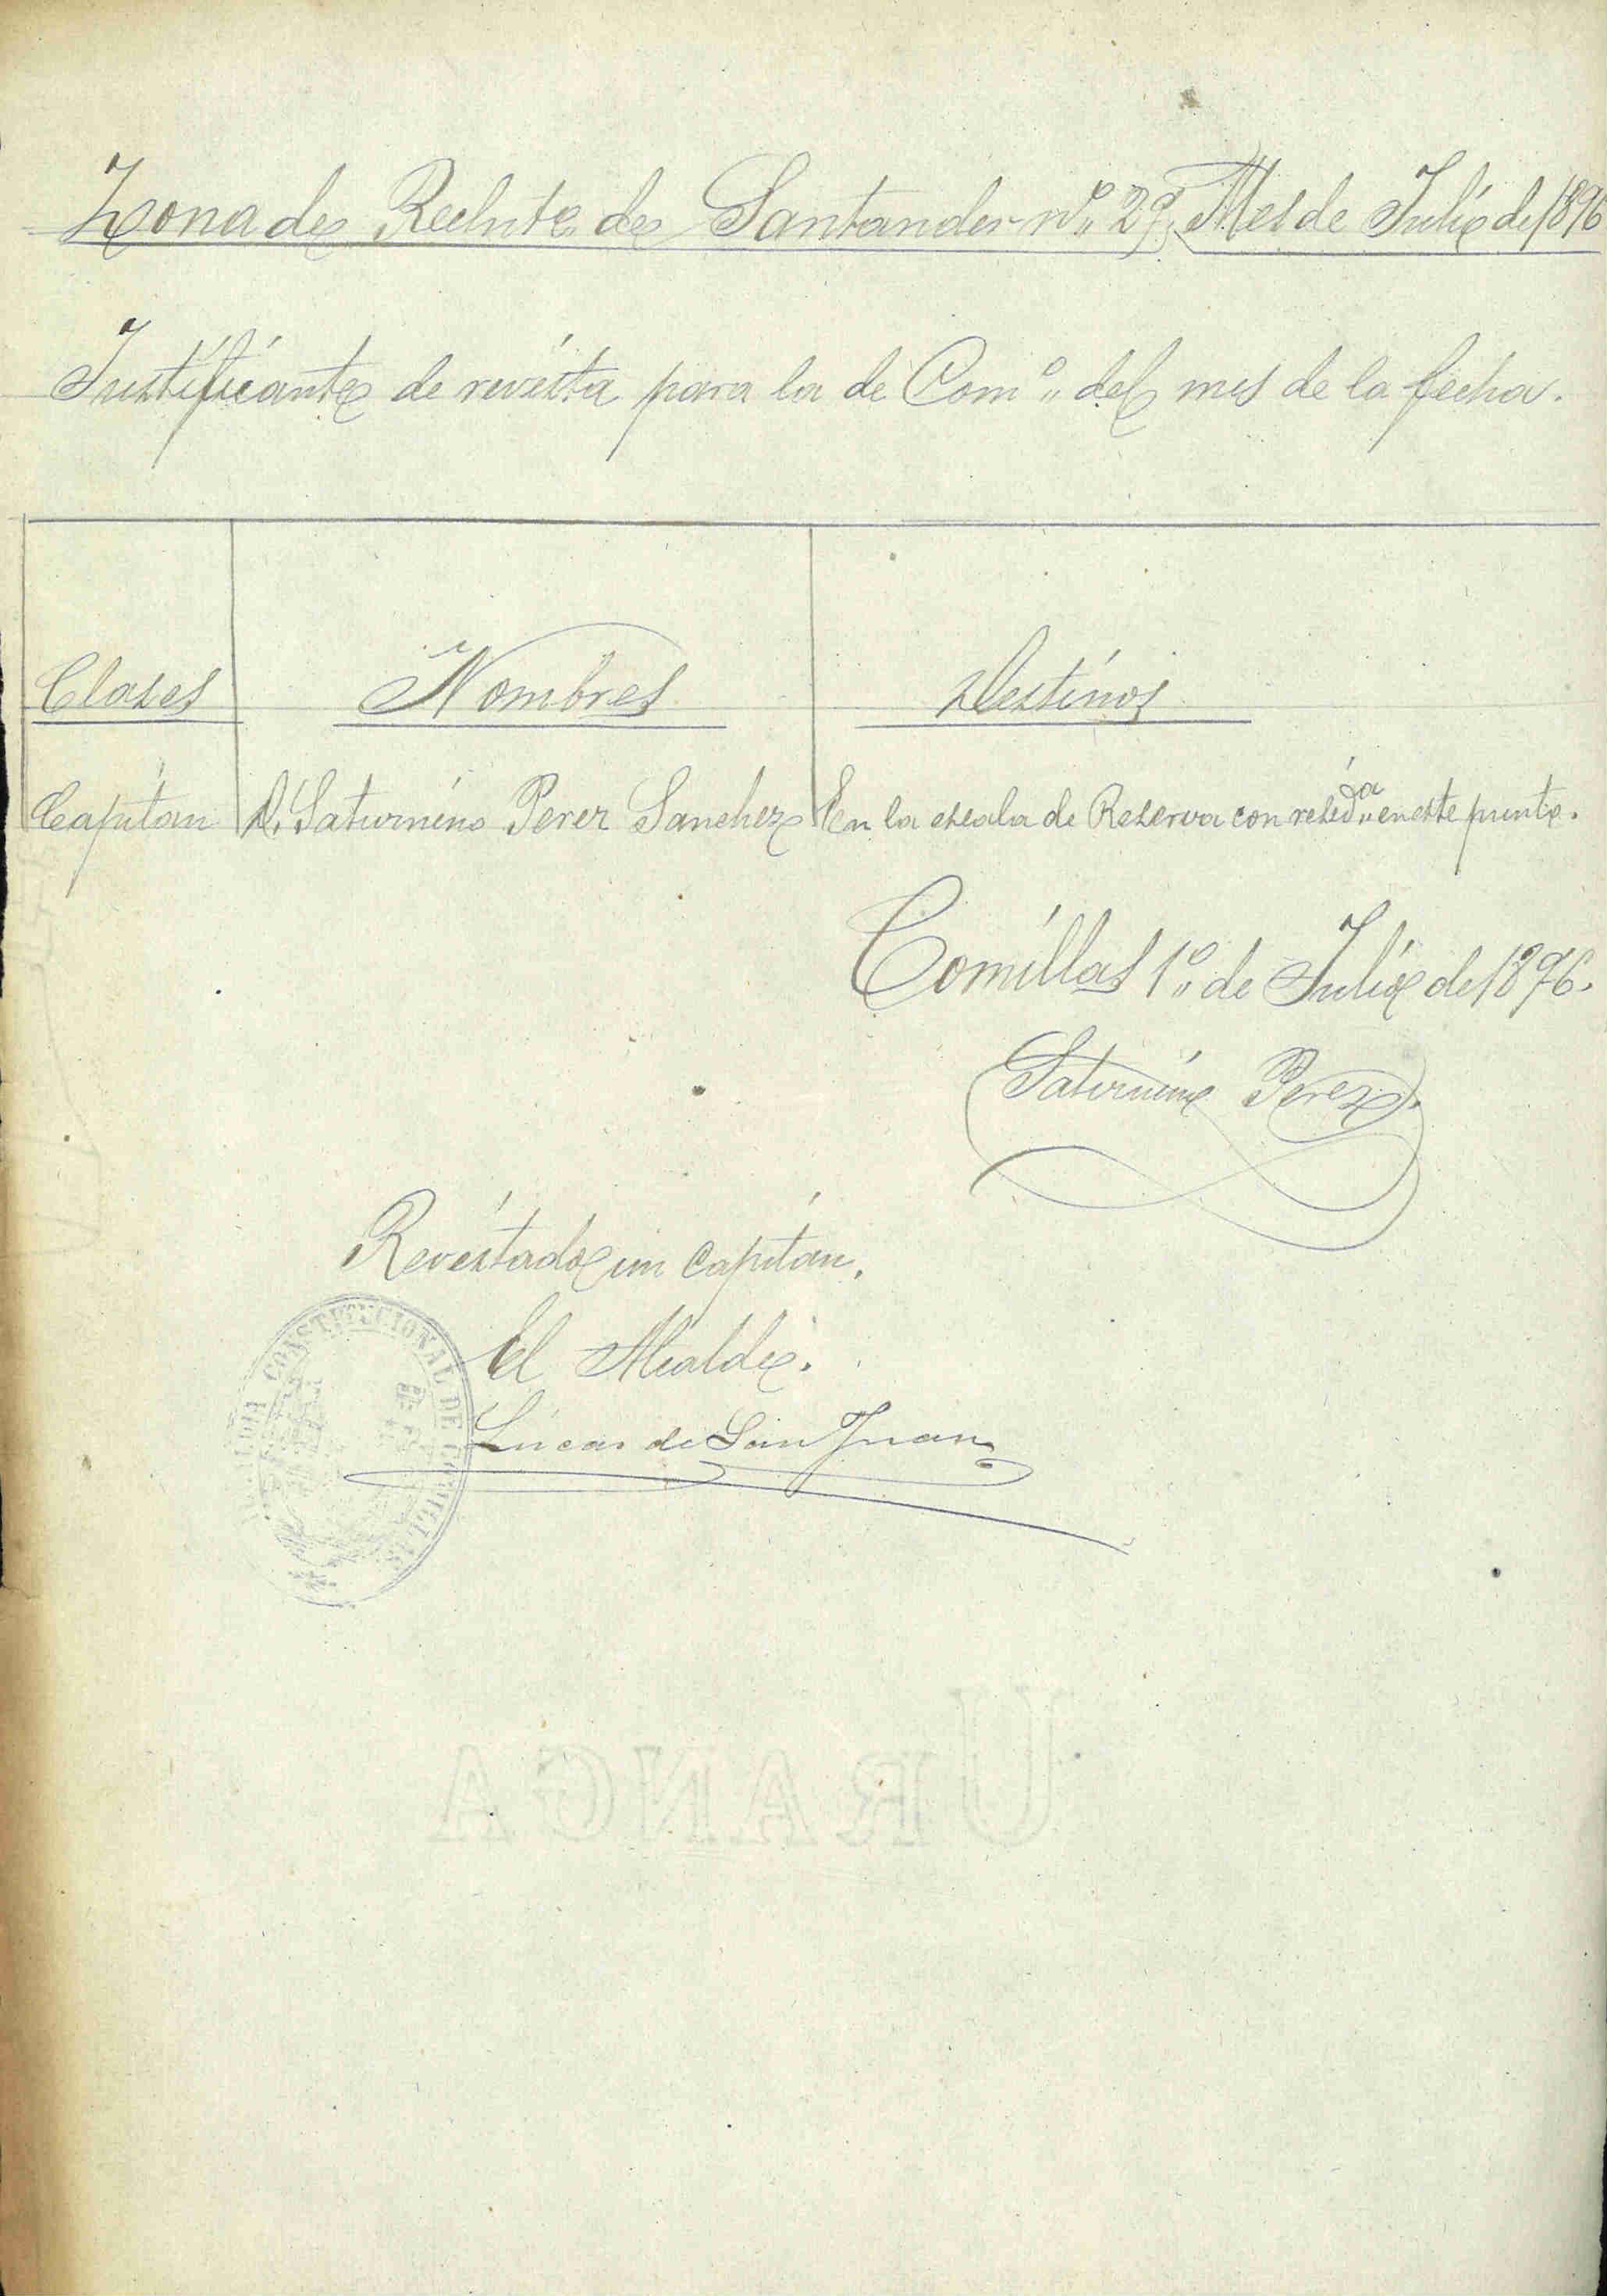 Zona de Recluta de Santander nº 29, Mes de Julio de 1896
Justificante de revista para la de Comº del mes de la fecha.
Clases Nombres Destinos
Capitan D. Saturnino Perez Sanchez En la escala de Reserva con resid.ª en este punto.
Comillas 1º de Julio de 1896.
Saturnino Perez
Revistado un capitan.
El Alcalde.
Lúcas de San Juan
ALCALDIA CONSTITUCIONAL DE COMILLAS
URANGA